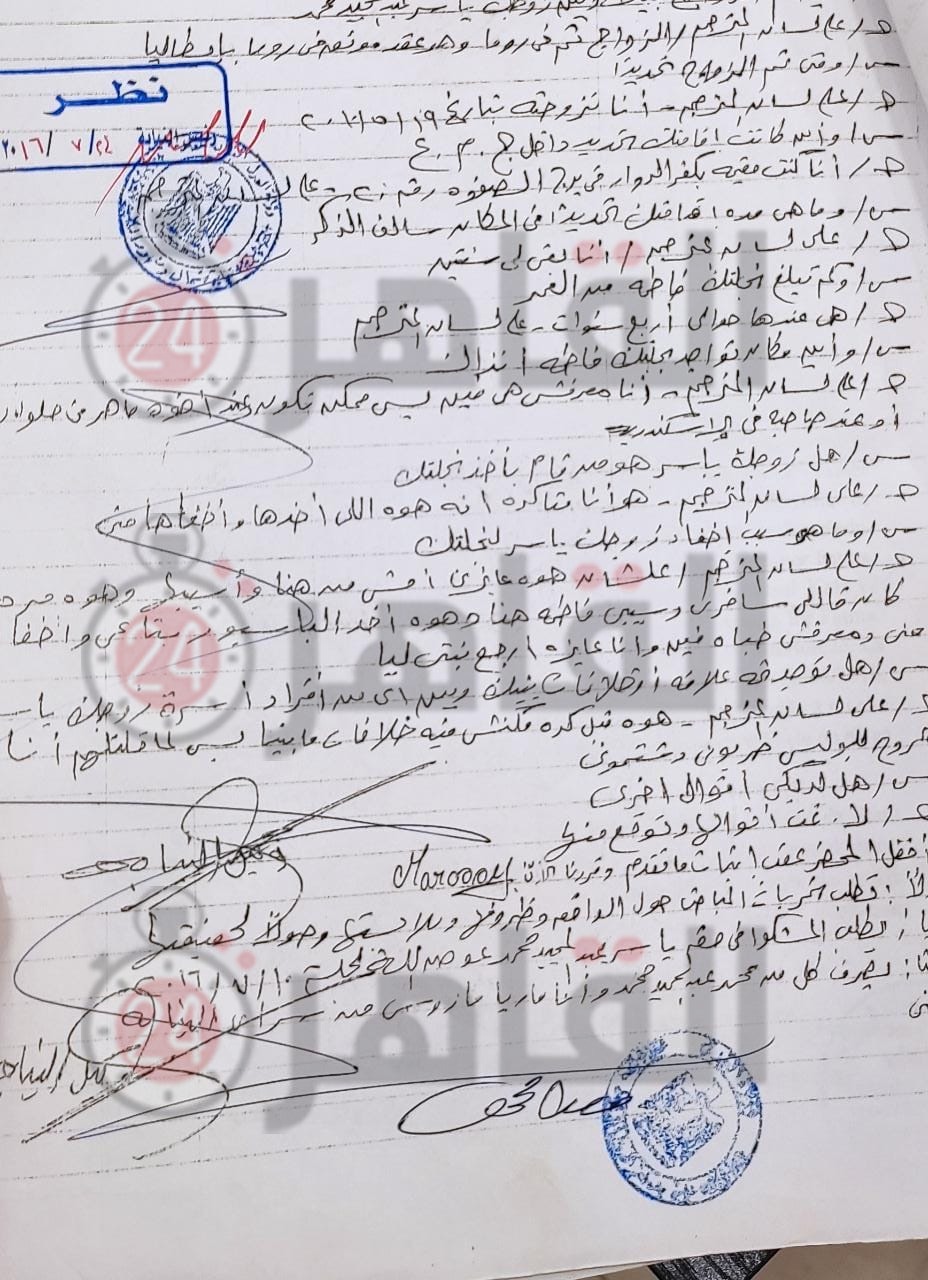 ج/ على لسان المترجم / الزواج تم في روما وهو عقد موثق في روما بإيطاليا
س/ ومتى تم الزواج تحديدا
ج/ على لسان المترجم - أنا تزوجته بتاريخ
نظر
٢٠١٦/٧/٢٤
س/ وأين كانت إقامتك تحديدا داخل ج.م.ع
ج/ أنا كنت مقيمه بكفر الدوار في برج الصفوه رقم - على لسان المترجم
س/ وما هي مده إقامتك تحديدا في المكان سالف الذكر
ج/ على لسان المترجم / أنا بقى لي سنتين
س/ وكم تبلغ نجلتك فاطمه من العمر
ج/ هي عندها حوالي أربع سنوات - على لسان المترجم
س/ وأين مكان تواجد نجلتك فاطمه آنذاك
ج/ على لسان المترجم - أنا معرفش هي فين بس ممكن تكون عند أخوه ماهر في
أو عند صاحبه في الإسكندريه
س/ هل زوجك ياسر هو من قام بأخذ نجلتك
ج/ على لسان المترجم - هو أنا متأكده انه هوه اللي أخدها وأخفاها مني
س/ وما هو سبب إخفاء زوجك ياسر لنجلتك
ج/ على لسان المترجم / علشان هوه عايزني أمشي من هنا وأسيبها وهوه
كان قالي سافري وسيبي فاطمه هنا وهوه أخد الباسبور بتاعي وأخفا
مني ومعرفش خباه فين وأنا عايزه أرجع بنتي ليا
س/ هل توجد ثمة علاقه أو خلافات بينك وبين أي من أفراد أسرة زوجك
ج/ على لسان المترجم - هوه قبل كده مكنش فيه خلافات ما بينا بس لما قلتلهم أنا
هروح للبوليس ضربوني وشتموني
س/ هل لديكي أقوال أخرى
ج/ لا. تمت أقوالها وتوقع منها
وكيل النيابه
أقفل المحضر عقب إثبات ما تقدم وقررنا الآتي
: تطلب تحريات المباحث حول الواقعه وظروفها وملابساتها وصولا لحقيقتها
: يطلب المشكو في حقه ياسر عبد الحميد محمد عوض لجلسة
: يصرف كل من محمد عبد الحميد محمد وأنا ماريا من سراي النيابه
وكيل النيابه
القاهرة 24
القاهرة 24
القاهرة 24